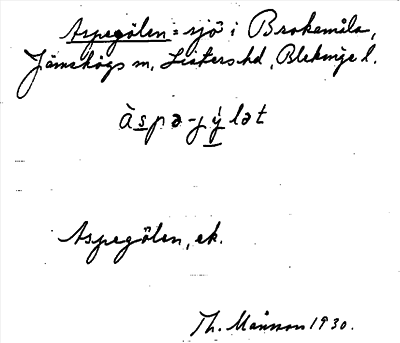 Aspegölen = sjö i Brokamåla,
Jämshögs sn, Listers hd, Blekinge l.
àspə-jý́lət
Aspegölen, ek.
Th. Månsson 1930.